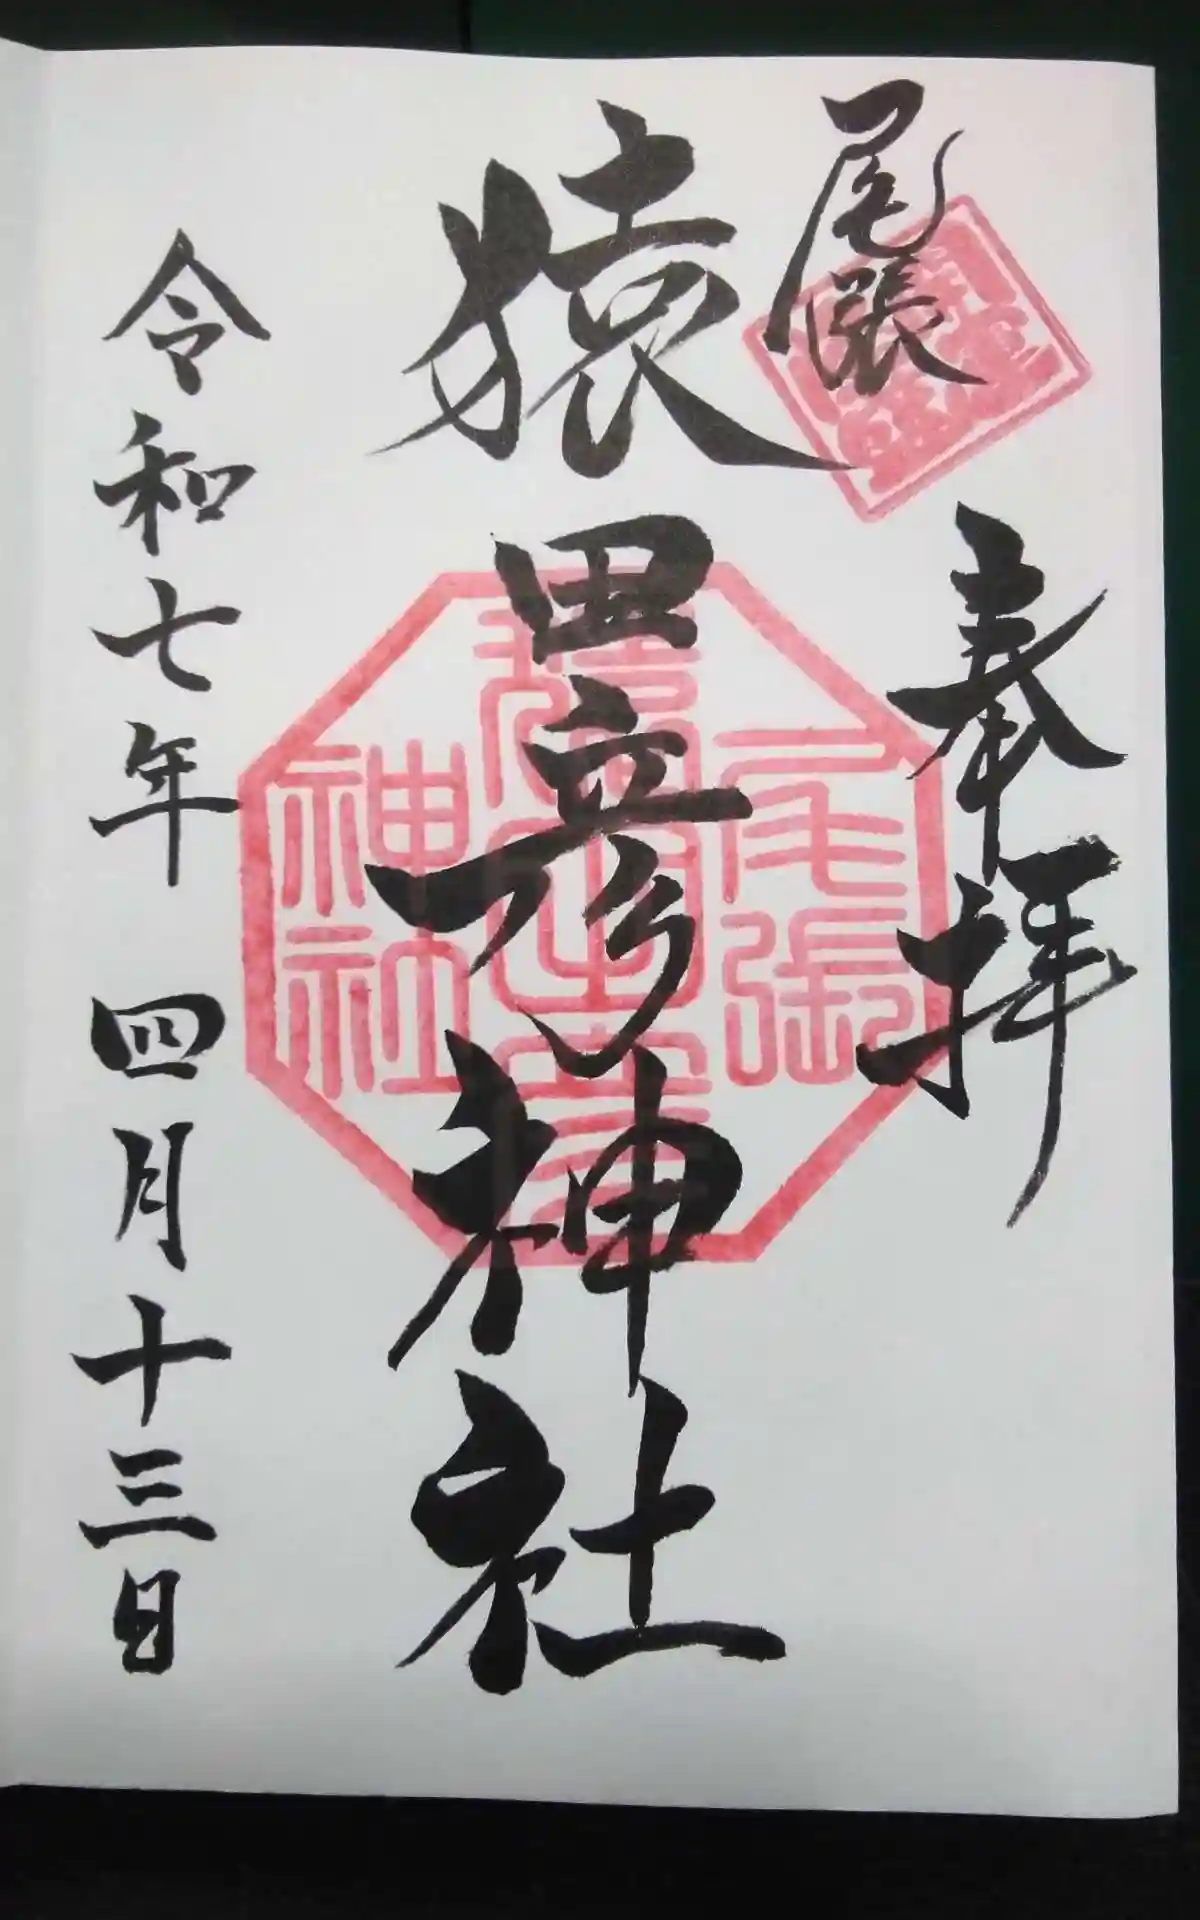 尾張
奉拝
猿田彦神社
令和七年 四月十三日
尾張
猿田彦
神社